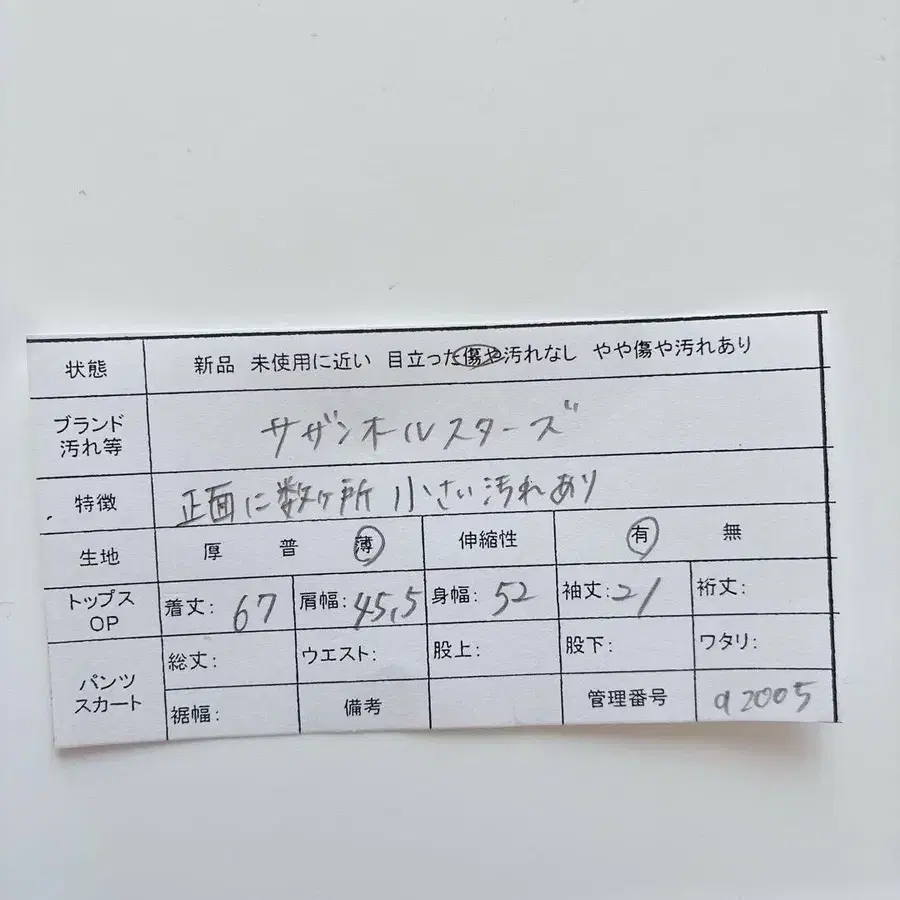 状態 新品 未使用に近い 目立った傷や汚れなし やや傷や汚れあり
ブランド
汚れ等 サザンオールスターズ
特徴 正面に数ヶ所 小さい汚れあり
生地 厚 普 薄 伸縮性 有 無
トップス
OP 着丈: 67 肩幅: 45,5 身幅: 52 袖丈: 21 裄丈:
パンツ
スカート 総丈: ウエスト: 股上: 股下: ワタリ:
裾幅: 備考 管理番号 a2005